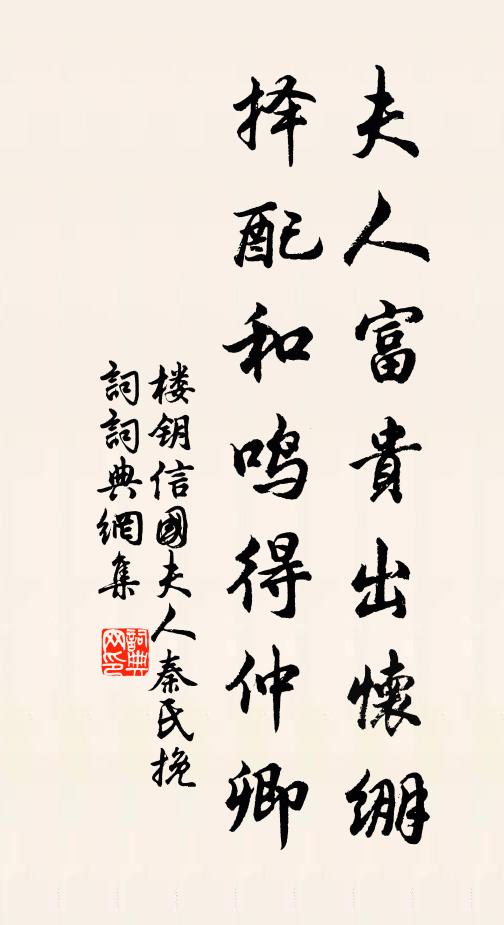 夫人富貴出懷绷
择配和鸣得仲卿
楼钥信國夫人秦氏挽
詞詞典網集
詞典网印